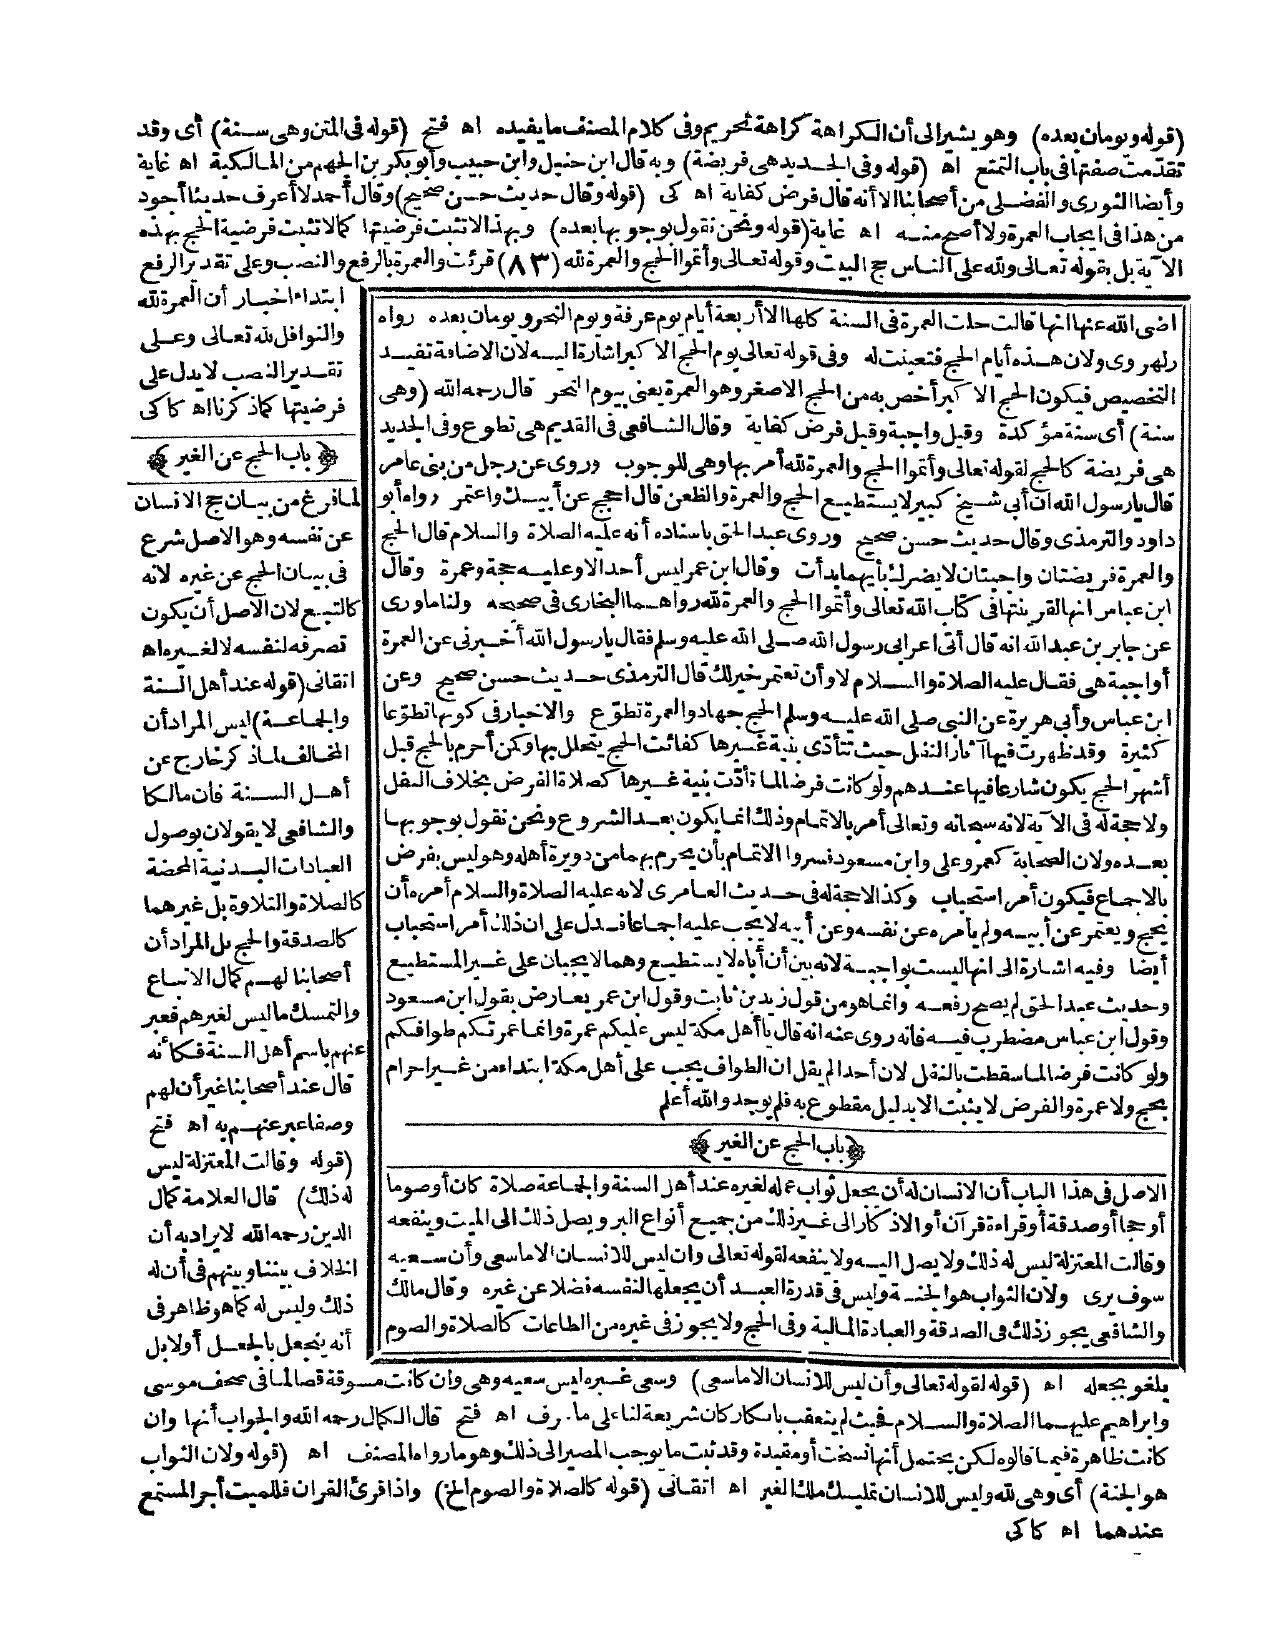 (قوله ويومان بعده) وهو يشير الى أن الكراهة كراهة تحريم وفى كلام المصنف ما يفيده اه فتح (قوله فى المتن وهى سنة) أى وقد
تقدمت صفتها فى باب التمتع اه (قوله وفى الجديد هى فريضة) وبه قال ابن حنبل وابن حبيب وأبو بكر بن الجهم من المالكية اه غاية
وأيضا الثورى والفضلى من أصحابنا الا أنه قال فرض كفاية اه كى (قوله وقال حديث حسن صحيح) وقال أحمد لا أعرف حديثا أجود
من هذا فى ايجاب العمرة ولا أصح منه اه غاية (قوله ونحن نقول بوجوبها بعده) وبهذا لا تثبت فرضيتها كما لا تثبت فرضية الحج بهذه
الآية بل بقوله تعالى ولله على الناس حج البيت وقوله تعالى وأتموا الحج والعمرة لله (٨٣) قرئت والعمرة بالرفع والنصب وعلى تقدير الرفع
ابتداء اخبار أن العمرة لله
والنوافل لله تعالى وعلى
تقدير النصب لا يدل على
فرضيتها كما ذكرنا اه كاكى
﴿باب الحج عن الغير﴾
لما فرغ من بيان حج الانسان
عن نفسه وهو الاصل شرع
فى بيان الحج عن غيره لانه
كالتبع لان الاصل أن يكون
تصرفه لنفسه لا لغيره اه
اتقانى (قوله عند أهل السنة
والجماعة) ليس المراد أن
المخالف لما ذكر خارج عن
أهل السنة فان مالكا
والشافعى لا يقولان بوصول
العبادات البدنية المحضة
كالصلاة والتلاوة بل غيرهما
كالصدقة والحج بل المراد أن
أصحابنا لهم كمال الاتباع
والتمسك ما ليس لغيرهم فعبر
عنهم باسم أهل السنة فكأنه
قال عند أصحابنا غير أن لهم
وصفا عبر عنهم به اه فتح
(قوله وقالت المعتزلة ليس
له ذلك) قال العلامة كمال
الدين رحمه الله لا يراد به أن
الخلاف بيننا وبينهم فى أن له
ذلك وليس له كما هو ظاهر فى
أنه ينجعل بالجعل أولا بل
اضى الله عنها انها قالت حلت العمرة فى السنة كلها الا أربعة أيام يوم عرفة ويوم النحر ويومان بعده رواه
رلهروى ولان هذه أيام الحج فتعينت له وفى قوله تعالى يوم الحج الاكبر اشارة اليه لان الاضافة تفيد
التخصيص فيكون الحج الاكبر أخص به من الحج الاصغر وهو العمرة يعنى بيوم النحر قال رحمه الله (وهى
سنة) أى سنة مؤكدة وقيل واجبة وقيل فرض كفاية وقال الشافعى فى القديم هى تطوع وفى الجديد
هى فريضة كالحج لقوله تعالى وأتموا الحج والعمرة لله أمر بها وهى للوجوب وروى عن رجل من بنى عامر
قال يا رسول الله ان أبى شيخ كبير لا يستطيع الحج والعمرة والظعن قال احجج عن أبيك واعتمر رواه أبو
داود والترمذى وقال حديث حسن صحيح وروى عبد الحق باسناده أنه عليه الصلاة والسلام قال الحج
والعمرة فريضتان واجبتان لا يضرك بأيهما بدأت وقال ابن عمر ليس أحد الا وعليه حجة وعمرة وقال
ابن عباس انها لقرينتها فى كتاب الله تعالى وأتموا الحج والعمرة لله رواهما البخارى فى صحيحه ولنا ما روى
عن جابر بن عبد الله انه قال أتى اعرابى رسول الله صلى الله عليه وسلم فقال يا رسول الله أخبرنى عن العمرة
أواجبة هى فقال عليه الصلاة والسلام لا وأن تعتمر خير لك قال الترمذى حديث حسن صحيح وعن
ابن عباس وأبى هريرة عن النبى صلى الله عليه وسلم الحج جهاد والعمرة تطوع والاخبار فى كونها تطوعا
كثيرة وقد ظهرت فيها آثار النفل حيث تتأدى بنية غيرها كفائت الحج يتحلل بها وكمن أحرم بالحج قبل
أشهر الحج يكون شارعا فيها عندهم ولو كانت فرضا لما تأدت بنية غيرها كصلاة الفرض بخلاف النفل
ولا حجة له فى الآية لانه سبحانه وتعالى أمر بالاتمام وذلك انما يكون بعد الشروع ونحن نقول بوجوبها
بعده ولان الصحابة كعمر وعلى وابن مسعود فسروا الاتمام بأن يحرم بهما من دويرة أهله وهو ليس بفرض
بالاجماع فيكون أمر استحباب وكذا لا حجة له فى حديث العامرى لانه عليه الصلاة والسلام أمره أن
يحج ويعتمر عن أبيه ولم يأمره عن نفسه وعن أبيه لا يجب عليه اجماعا فدل على ان ذلك أمر استحباب
أيضا وفيه اشارة الى انها ليست بواجبة لانه بين أن أباه لا يستطيع وهما لا يجبان على غير المستطيع
وحديث عبد الحق لم يصح رفعه وانما هو من قول زيد بن ثابت وقول ابن عمر يعارض بقول ابن مسعود
وقول ابن عباس مضطرب فيه فانه روى عنه انه قال يا أهل مكة ليس عليكم عمرة وانما عمرتكم طوافكم
ولو كانت فرضا لما سقطت بالنفل لان أحدا لم يقل ان الطواف يجب على أهل مكة ابتداء من غير احرام
بحج ولا عمرة والفرض لا يثبت الا بدليل مقطوع به فلم يوجد والله أعلم
﴿باب الحج عن الغير﴾
الاصل فى هذا الباب أن الانسان له أن يجعل ثواب عمله لغيره عند أهل السنة والجماعة صلاة كان أو صوما
أو حجا أو صدقة أو قراءة قرآن أو الاذكار الى غير ذلك من جميع أنواع البر ويصل ذلك الى الميت وينفعه
وقالت المعتزلة ليس له ذلك ولا يصل اليه ولا ينفعه لقوله تعالى وان ليس للانسان الا ما سعى وأن سعيه
سوف يرى ولان الثواب هو الجنة وليس فى قدرة العبد أن يجعلها لنفسه فضلا عن غيره وقال مالك
والشافعى يجوز ذلك فى الصدقة والعبادة المالية وفى الحج ولا يجوز فى غيره من الطاعات كالصلاة والصوم
يلغو بجعله اه (قوله لقوله تعالى وأن ليس للانسان الا ما سعى) وسعى غيره ليس سعيه وهى وان كانت مسوقة قصا لما فى صحف موسى
وابراهيم عليهما الصلاة والسلام فحيث لم يتعقب بانكار كان شريعة لنا على ما عرف اه فتح قال الكمال رحمه الله والجواب أنها وان
كانت ظاهرة فيما قالوه لكن يحتمل أنها نسخت أو مقيدة وقد ثبت ما يوجب المصير الى ذلك وهو ما رواه المصنف اه (قوله ولان الثواب
هو الجنة) أى وهى لله وليس للانسان تمليك ملك الغير اه اتقانى (قوله كالصلاة والصوم الخ) واذا قرئ القرآن فللميت أجر المستمع
عندهما اه كاكى